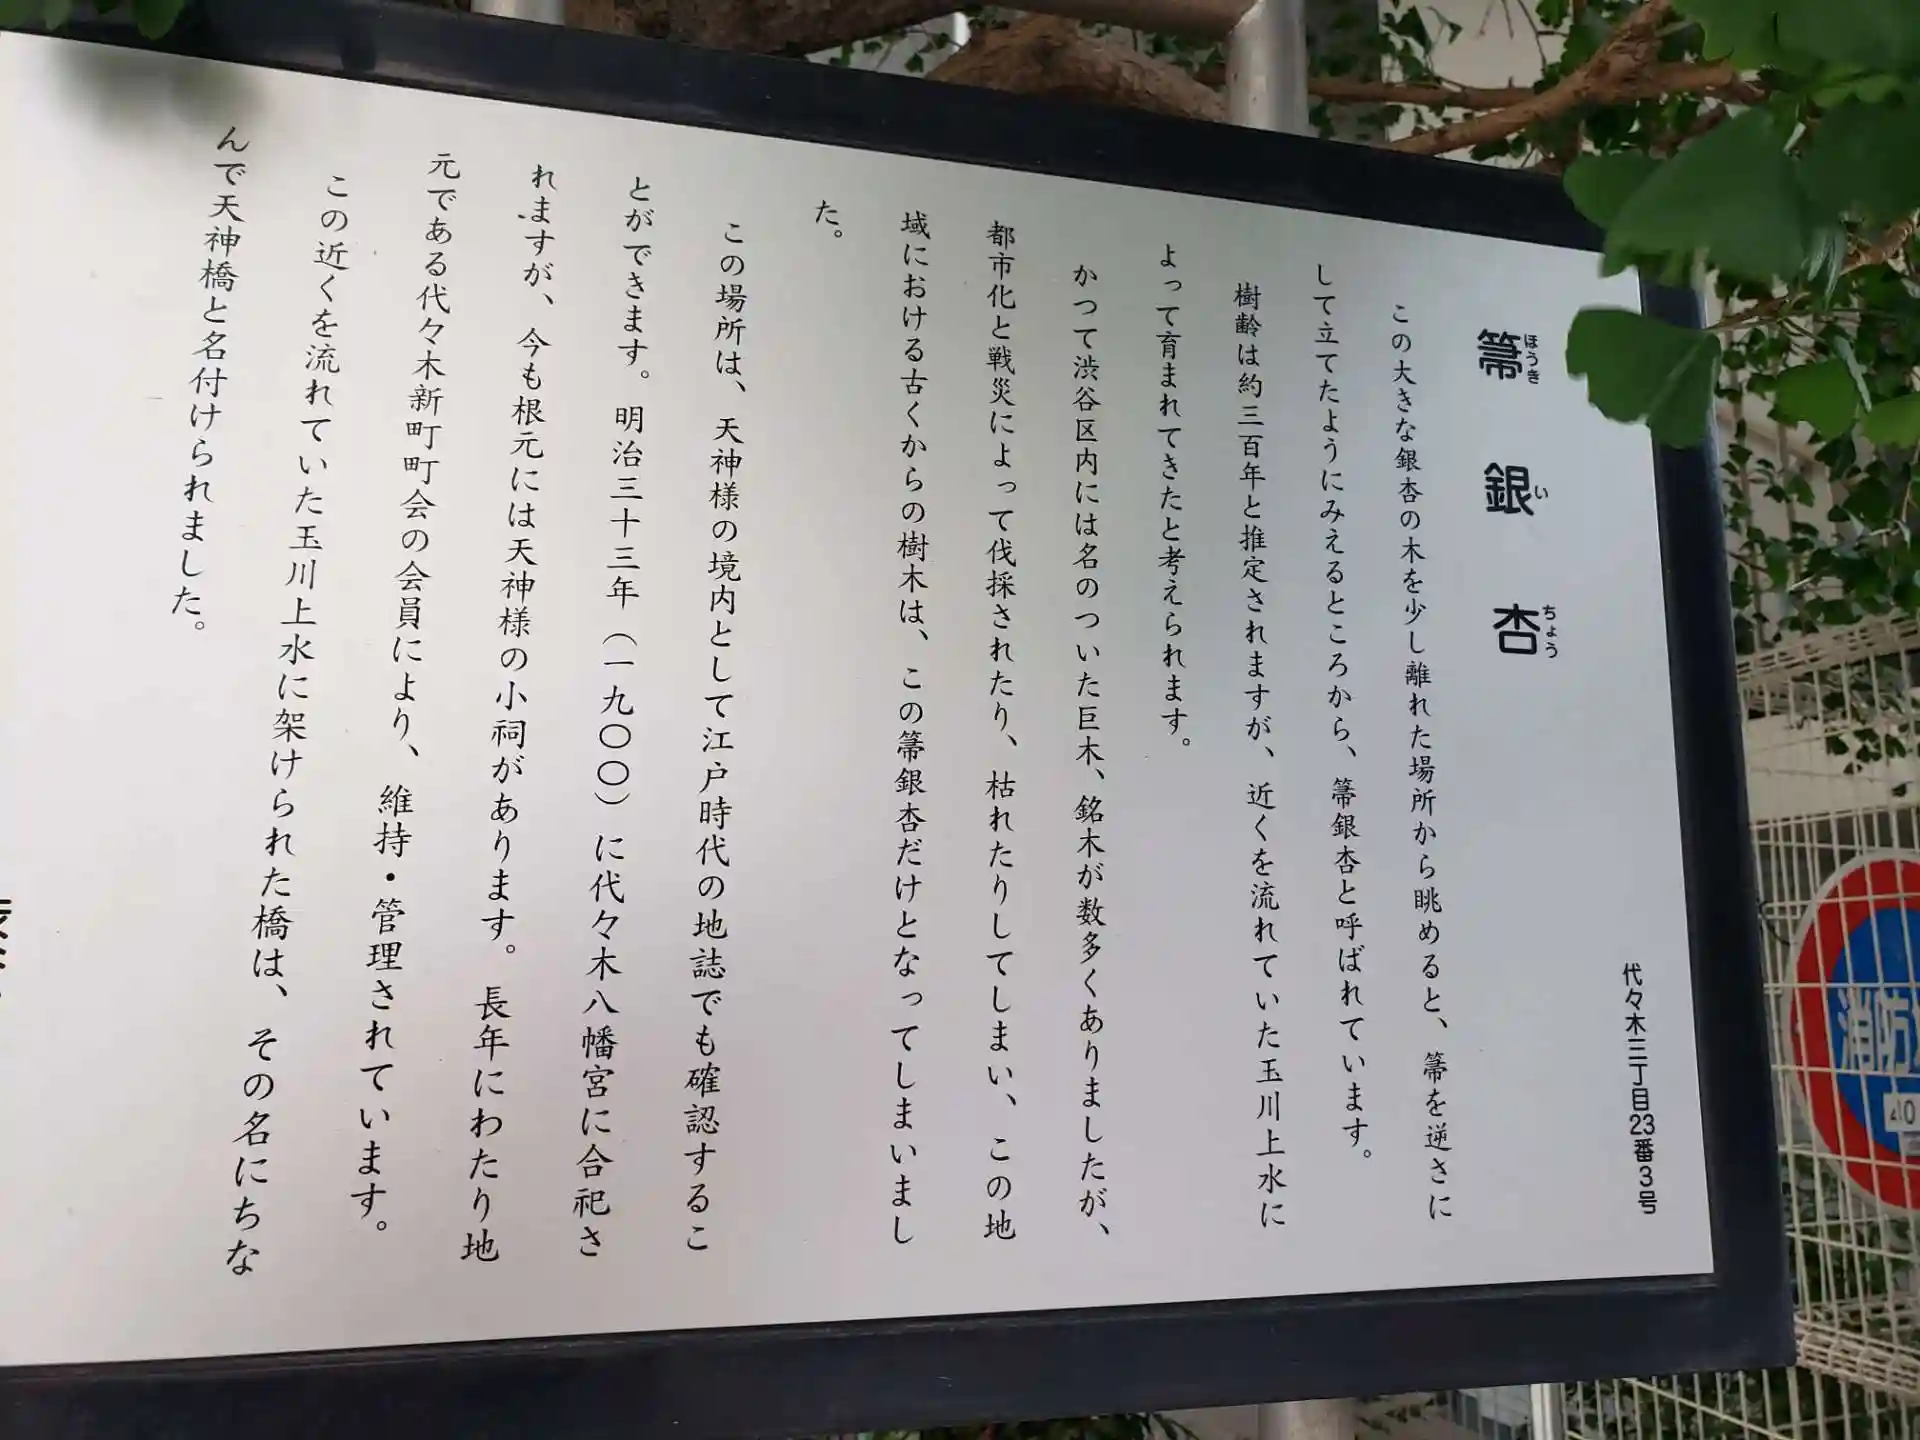 代々木三丁目23番3号
箒銀杏
ほうき い ちょう
この大きな銀杏の木を少し離れた場所から眺めると、箒を逆さに
して立てたようにみえるところから、箒銀杏と呼ばれています。
樹齢は約三百年と推定されますが、近くを流れていた玉川上水に
よって育まれてきたと考えられます。
かつて渋谷区内には名のついた巨木、銘木が数多くありましたが、
都市化と戦災によって伐採されたり、枯れたりしてしまい、この地
域における古くからの樹木は、この箒銀杏だけとなってしまいまし
た。
この場所は、天神様の境内として江戸時代の地誌でも確認するこ
とができます。明治三十三年（一九〇〇）に代々木八幡宮に合祀さ
れますが、今も根元には天神様の小祠があります。長年にわたり地
元である代々木新町町会の会員により、維持・管理されています。
この近くを流れていた玉川上水に架けられた橋は、その名にちな
んで天神橋と名付けられました。
消防